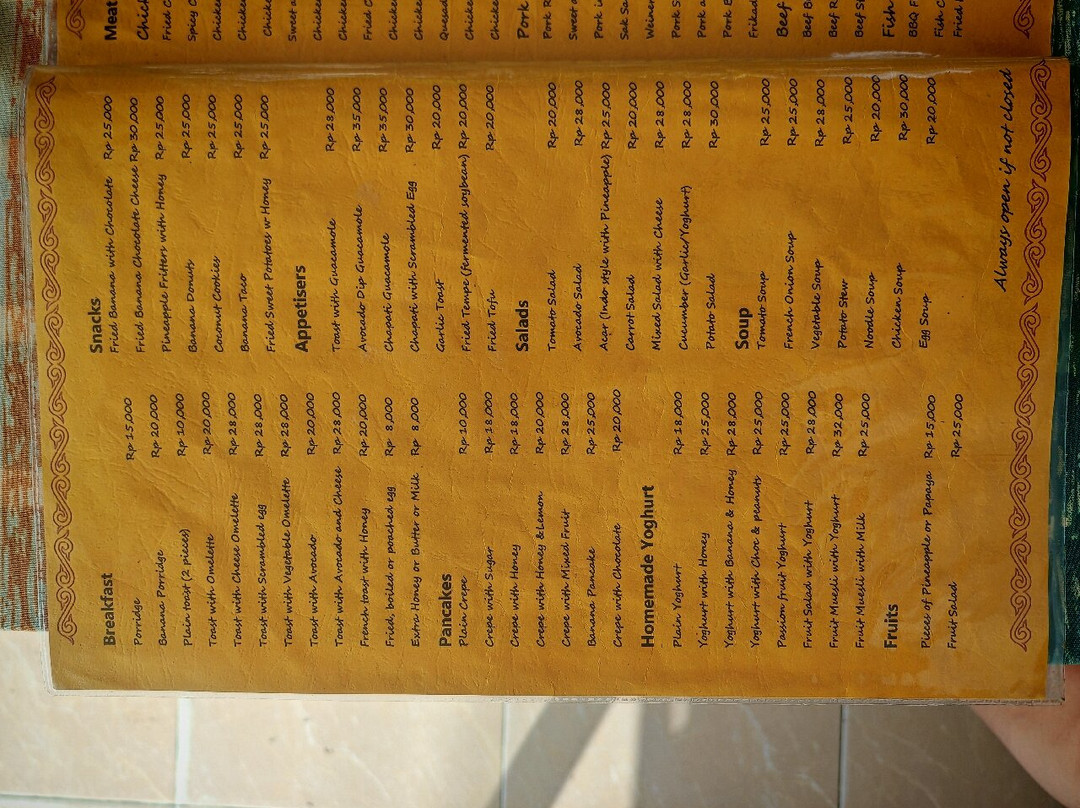 Breakfast
Porridge Rp 15,000
Banana Porridge Rp 20,000
Plain toast (2 pieces) Rp 10,000
Toast with Omelette Rp 20,000
Toast with Cheese Omelette Rp 28,000
Toast with Scrambled egg Rp 28,000
Toast with Vegetable Omelette Rp 28,000
Toast with Avocado Rp 20,000
Toast with Avocado and Cheese Rp 28,000
French toast with Honey Rp 20,000
Fried, boiled or poached egg Rp 8,000
Extra Honey or Butter or Milk Rp 8,000
Pancakes
Plain Crepe Rp 10,000
Crepe with Sugar Rp 18,000
Crepe with Honey Rp 18,000
Crepe with Honey & Lemon Rp 20,000
Crepe with Mixed Fruit Rp 28,000
Banana Pancake Rp 25,000
Crepe with Chocolate Rp 20,000
Homemade Yoghurt
Plain Yoghurt Rp 18,000
Yoghurt with Honey Rp 25,000
Yoghurt with Banana & Honey Rp 28,000
Yoghurt with Choc & peanuts Rp 25,000
Passion fruit Yoghurt Rp 25,000
Fruit Salad with Yoghurt Rp 28,000
Fruit Muesli with Yoghurt Rp 32,000
Fruit Muesli with Milk Rp 25,000
Fruits
Pieces of Pineapple or Papaya Rp 15,000
Fruit Salad Rp 25,000
Snacks
Fried Banana with Chocolate Rp 25,000
Fried Banana Chocolate Cheese Rp 30,000
Pineapple Fritters with Honey Rp 25,000
Banana Donuts Rp 25,000
Coconut Cookies Rp 25,000
Banana Taco Rp 25,000
Fried Sweet Potatoes w Honey Rp 25,000
Appetisers
Toast with Guacamole Rp 28,000
Avocado Dip Guacamole Rp 35,000
Chapati Guacamole Rp 35,000
Chapati with Scrambled Egg Rp 30,000
Garlic Toast Rp 20,000
Fried Tempe (fermented soybean) Rp 20,000
Fried Tofu Rp 20,000
Salads
Tomato Salad Rp 20,000
Avocado Salad Rp 28,000
Acar (Indo style with Pineapple) Rp 25,000
Carrot Salad Rp 20,000
Mixed Salad with Cheese Rp 28,000
Cucumber (Garlic/Yoghurt) Rp 28,000
Potato Salad Rp 30,000
Soup
Tomato Soup Rp 25,000
French Onion Soup Rp 25,000
Vegetable Soup Rp 28,000
Potato Stew Rp 25,000
Noodle Soup Rp 20,000
Chicken Soup Rp 30,000
Egg Soup Rp 20,000
Always open if not closed
Meat
Fried
Spicy
Sweet
Fried
Pork
Pork
Sweet
Pork
Pork
Pork
Pork
Beef
Beef
Beef
Beef
Fish
BBQ
Fish
Fried